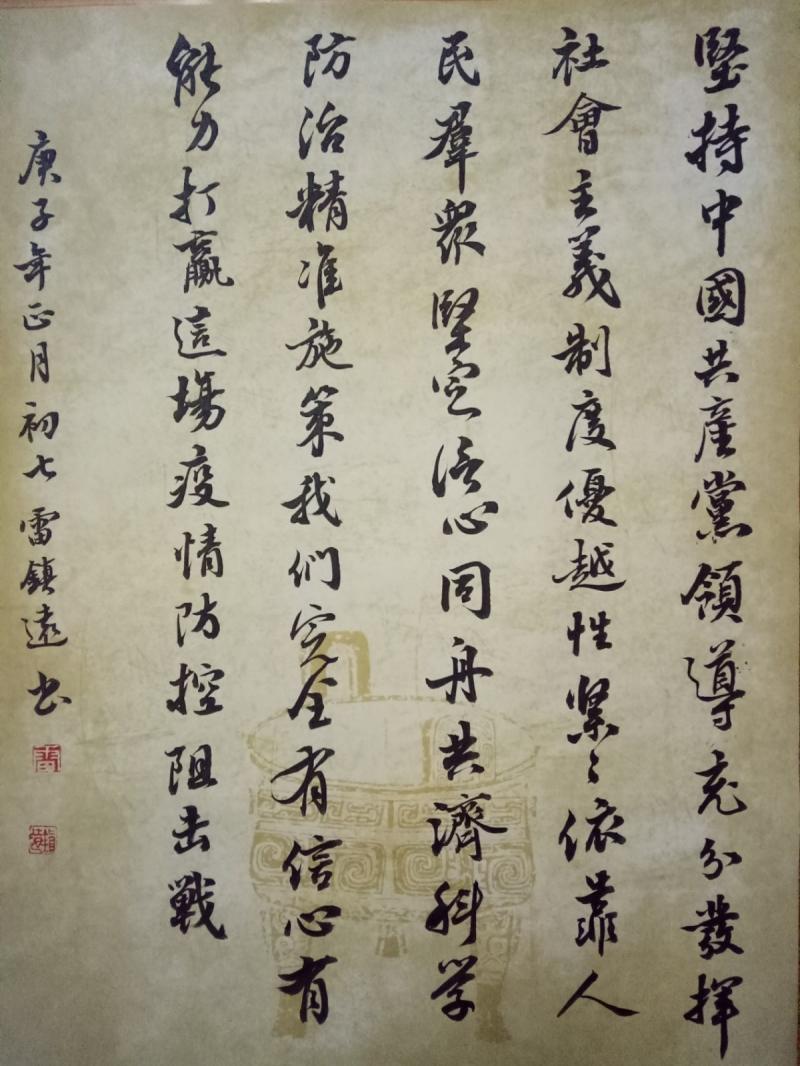 堅持中國共產黨領導充分發揮
社會主義制度優越性緊々依靠人
民羣衆堅定信心同舟共濟科学
防治精准施策我们完全有信心有
能力打贏這場疫情防控阻击戰
庚子年正月初七雷鎮遠书